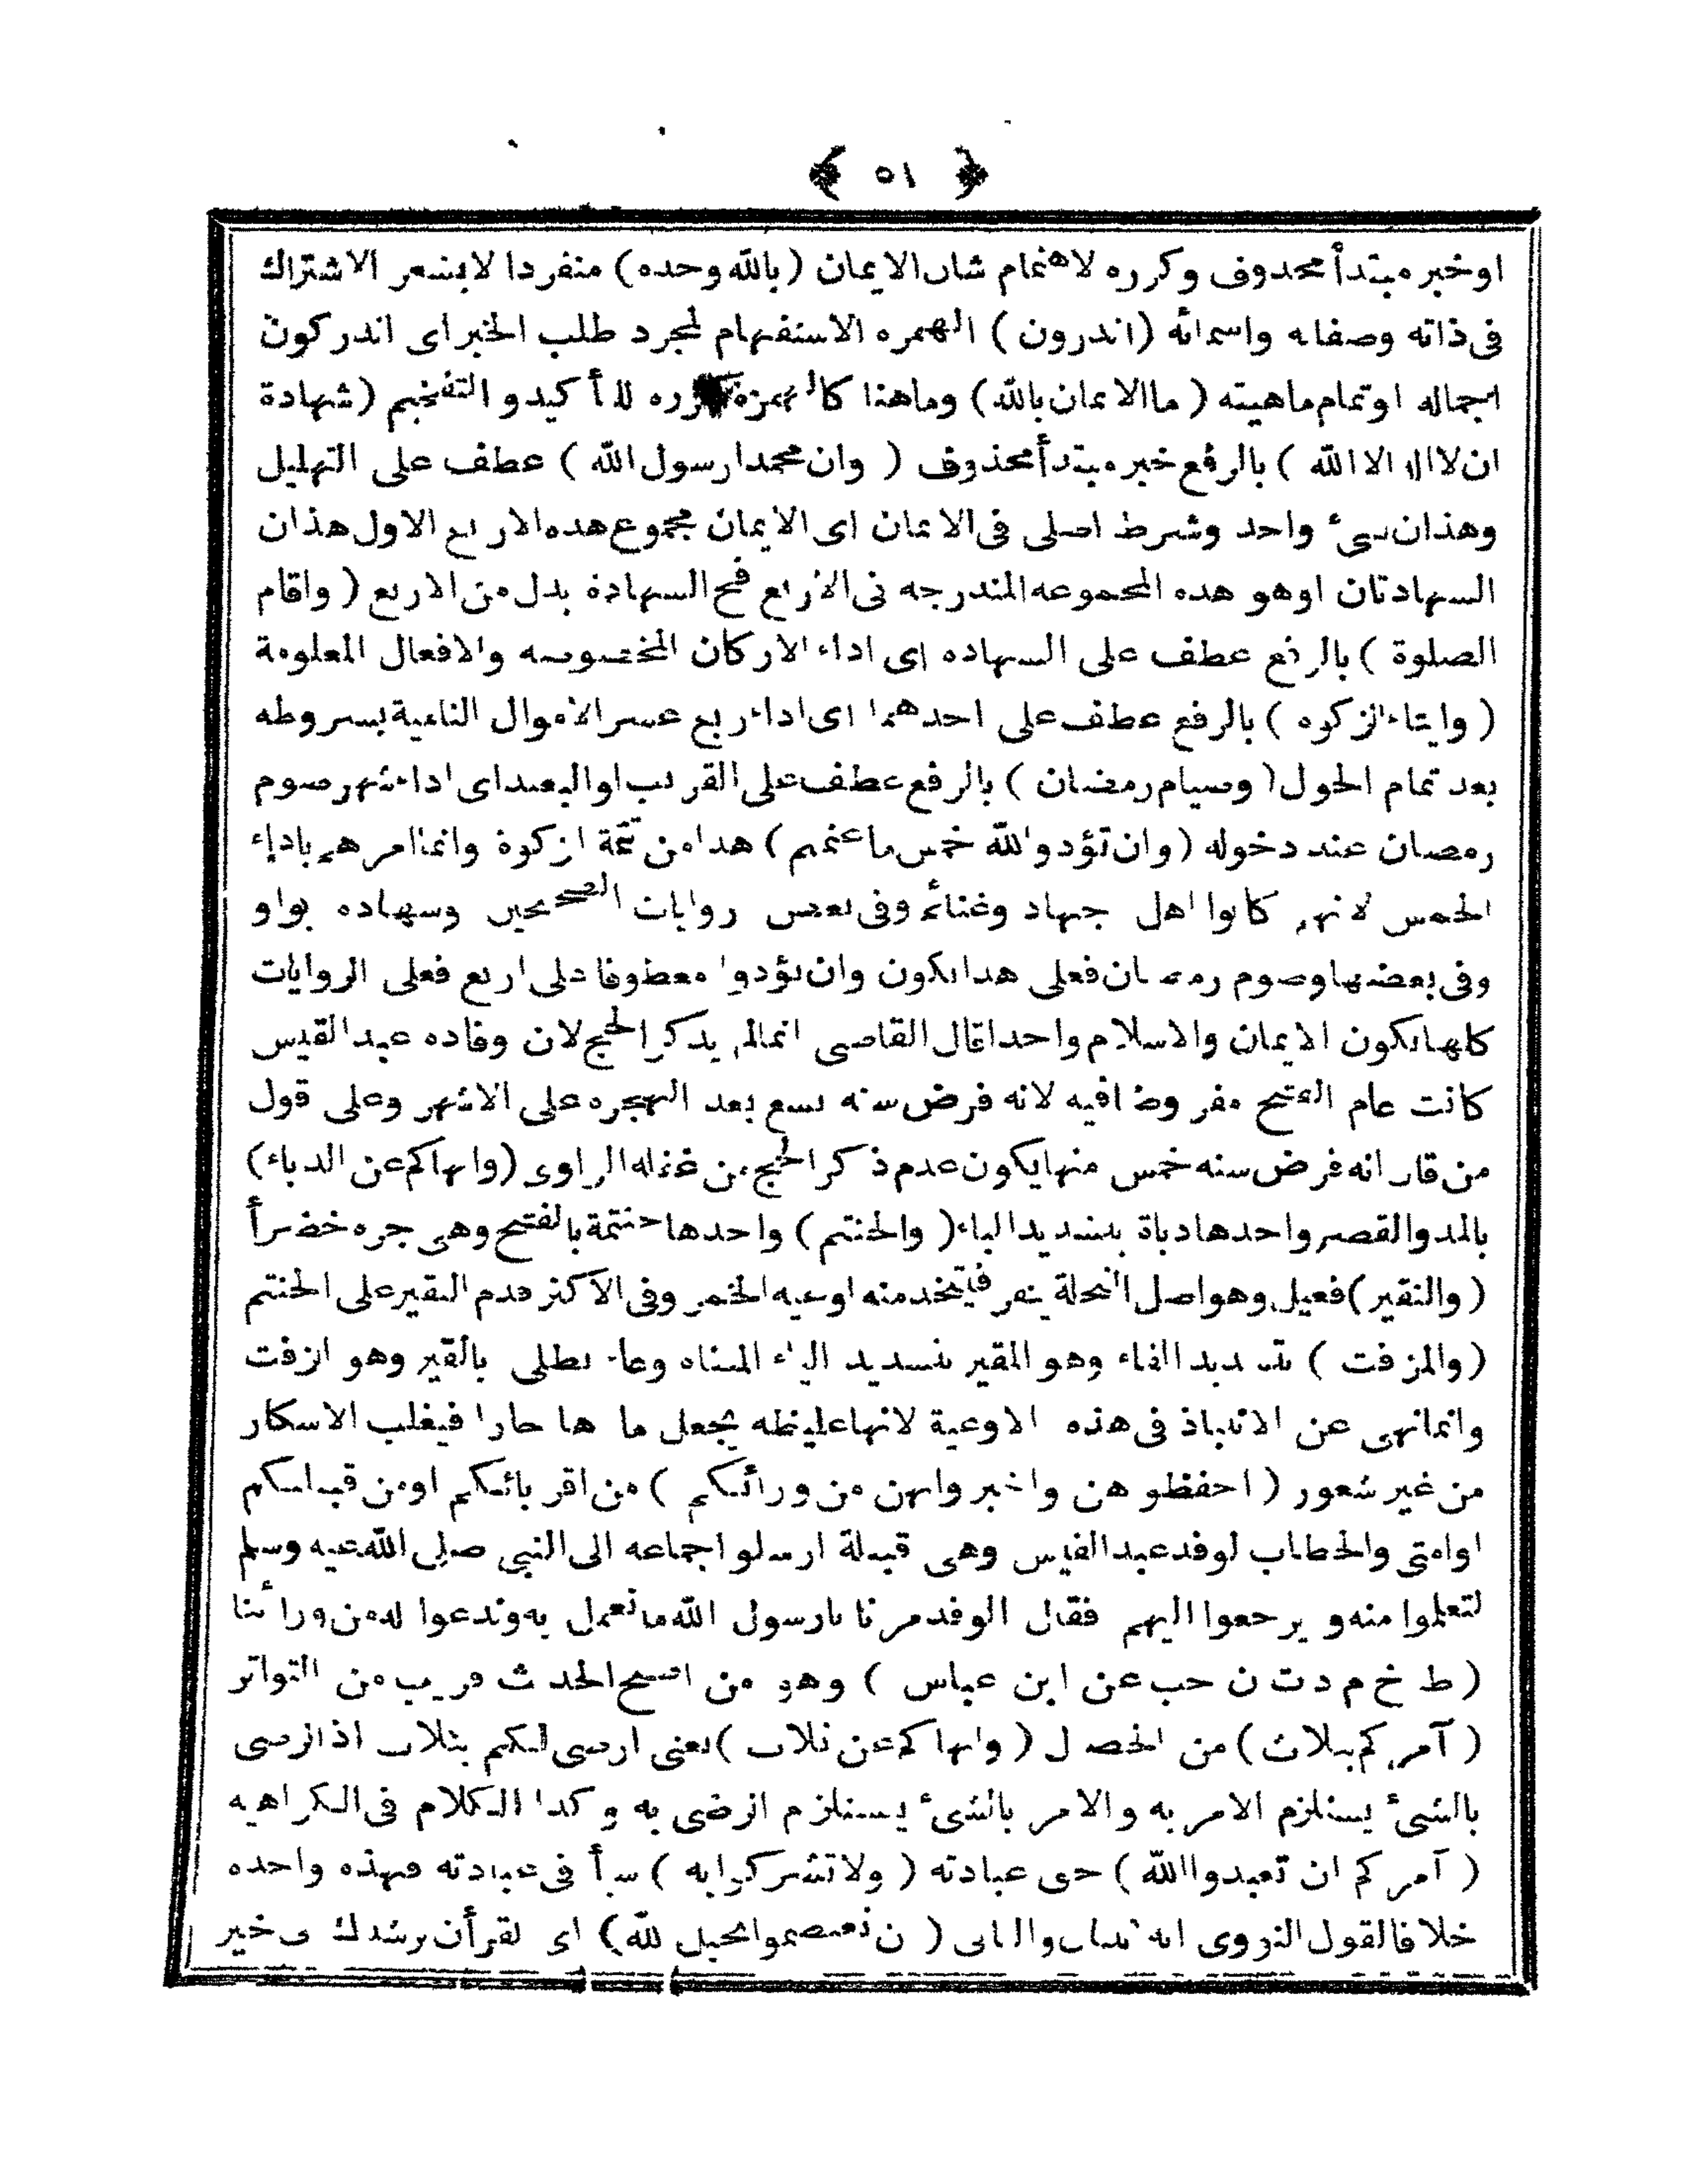 ﴿ ٥١ ﴾
او خبر مبتدأ محذوف وكرره لاهتمام شان الايمان (بالله وحده) منفردا لايشعر الاشتراك
فى ذاته وصفاته واسمائه (اتدرون) الهمزة الاستفهام لمجرد طلب الخبر اى اتدركون
اجماله او تمام ماهيته (ما الايمان بالله) وماهنا كالهمزة كرره للتأكيد والتفخيم (شهادة
ان لااله الا الله) بالرفع خبر مبتدأ محذوف (وان محمدا رسول الله) عطف على التهليل
وهذان شىء واحد وشرط اصلى فى الايمان اى الايمان مجموع هذه الاربع الاول هذان
الشهادتان او هو هذه المجموعة المندرجة فى الاربع فح الشهادة بدل من الاربع (واقام
الصلوة) بالرفع عطف على الشهادة اى اداء الاركان المخصوصة والافعال المعلومة
(وايتاء الزكوة) بالرفع عطف على احدهما اى اداء ربع عشر الاموال النامية بشروطه
بعد تمام الحول (وصيام رمضان) بالرفع عطف على القريب او البعيد اى اداء شهر صوم
رمضان عند دخوله (وان تؤدوا لله خمس ماغنمتم) هذا من تتمة الزكوة وانما امرهم باداء
الخمس لانهم كانوا اهل جهاد وغنائم وفى بعض روايات الصحيحين وشهادة بواو
وفى بعضها وصوم رمضان فعلى هذا يكون وان تؤدوا معطوفا على اربع فعلى الروايات
كلها يكون الايمان والاسلام واحدا قال القاضى انما لم يذكر الحج لان وفادة عبد القيس
كانت عام الفتح مفروضا فيه لانه فرض سنة تسع بعد الهجرة على الاشهر وعلى قول
من قال انه فرض سنة خمس منها يكون عدم ذكر الحج من غفلة الراوى (وانهاكم عن الدباء)
بالمد والقصر واحدها دباة بتشديد الباء (والحنتم) واحدها حنتمة بالفتح وهى جره خضرأ
(والنقير) فعيل وهو اصل النخلة ينقر فيتخذ منه اوعية الخمر وفى الاكثر قدم النقير على الحنتم
(والمزفت) بتشديد الفاء وهو المقير بتشديد الياء المثناة وعاء يطلى بالقير وهو الزفت
وانما نهى عن الانتباذ فى هذه الاوعية لانها غليظه يجعل ما ها حارا فيغلب الاسكار
من غير شعور (احفظوهن واخبروابهن من ورائكم) من اقربائكم او من قبيلتكم
او امتى والخطاب لوفد عبد القيس وهى قبيلة ارسلوا جماعة الى النبى صلى الله عليه وسلم
لتعلموا منه ويرجعوا اليهم فقال الوفد مرنا يارسول الله ما نعمل به وندعوا له من ورائنا
(ط خ م د ت ن حب عن ابن عباس) وهو من اصح الحديث قريب من التواتر
(آمركم بثلاث) من الخصال (وانهاكم عن ثلاث) يعنى ارضى لكم بثلاث اذ الرضى
بالشىء يستلزم الامر به والامر بالشىء يستلزم الرضى به وكذا الكلام فى الكراهية
(آمركم ان تعبدوا الله) حق عبادته (ولاتشركوا به) شيأ فى عبادته فهذه واحدة
خلافا لقول النووى انه ثنتان والثانى (ان تعتصموا بحبل الله) اى القرأن يرشدك خير